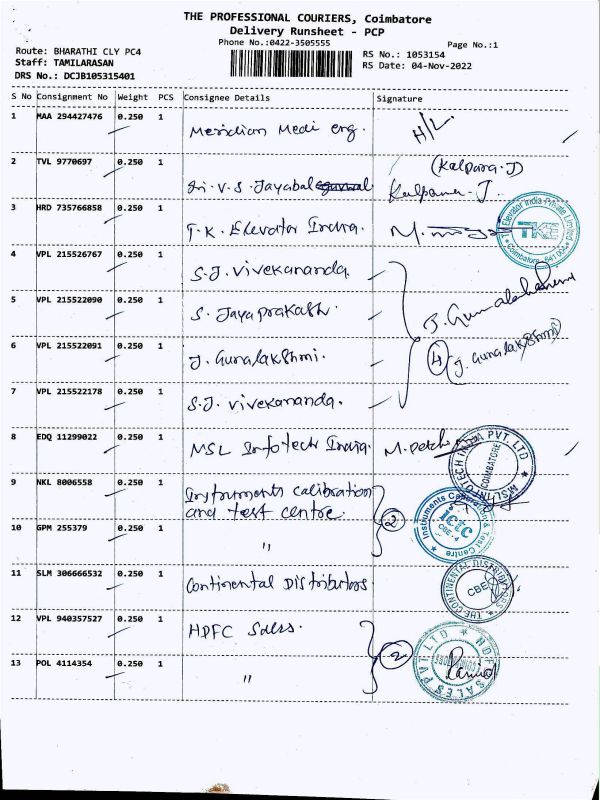 THE PROFESSIONAL COURIERS, Coimbatore
Delivery Runsheet - PCP
Phone No.:0422-3505555
Page No.:1
Route: BHARATHI CLY PC4
RS No.: 1053154
Staff: TAMILARASAN
RS Date: 04-Nov-2022
DRS No.: DCJB105315401
S No Consignment No Weight PCS Consignee Details Signature
1 MAA 294427476 0.250 1 Meridian Medi eng. H/L
2 TVL 9770697 0.250 1 (Kalpana.J)
V.S. Jayabal Kalpana. J.
3 HRD 735766858 0.250 1 T.K. Elevator India. M.
TK Elevator India Private Limited
TKE
Coimbatore - 641 004
4 VPL 215526767 0.250 1 S.J. Vivekananda.
5 VPL 215522090 0.250 1 S. Jayaprakash. J. Gunalakshmi
6 VPL 215522091 0.250 1 J. Gunalakshmi. 4 (J. Gunalakshmi)
7 VPL 215522178 0.250 1 S.J. Vivekananda.
8 EDQ 11299022 0.250 1 MSL Infotech India.
MSL INFOTECH INDIA PVT. LTD
COIMBATORE
9 NKL 8006558 0.250 1 Instruments calibration
and test centre. 2
Instruments Calibration & Test Centre
ictc
CBE-4
10 GPM 255379 0.250 1 "
11 SLM 306666532 0.250 1 Continental Distributors
THE CONTINENTAL DISTRIBUTORS
CBE
12 VPL 940357527 0.250 1 HDFC Sales.
2
HDFC SALES PVT LTD
13 POL 4114354 0.250 1 "